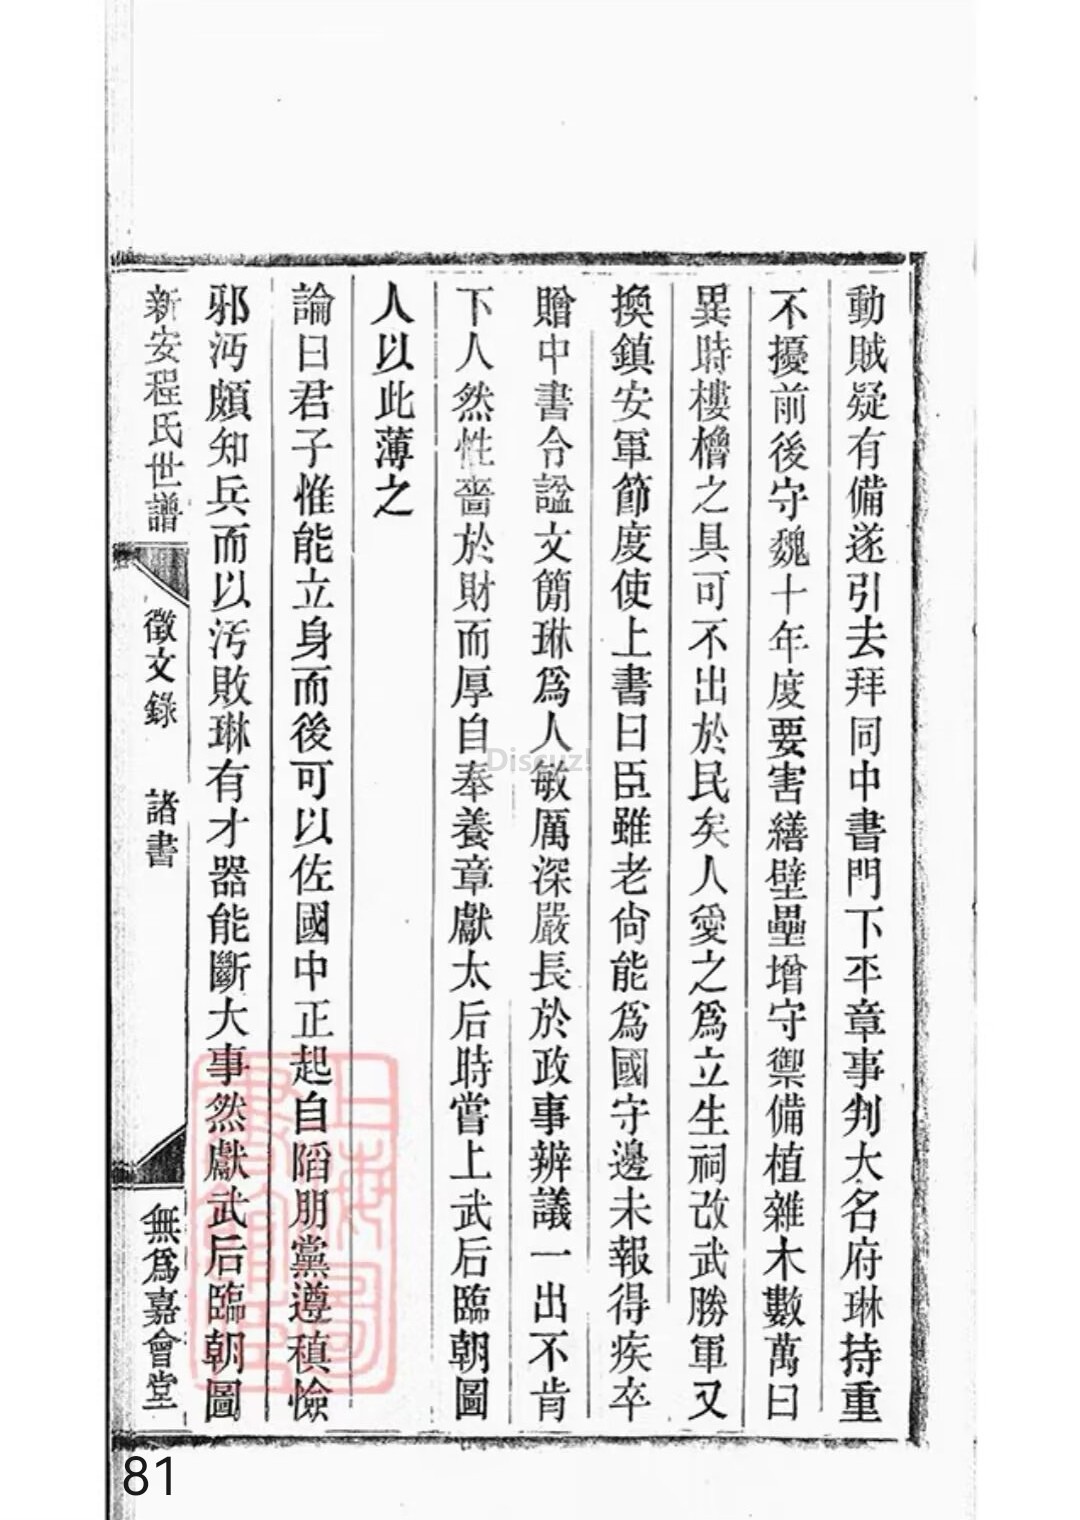 動賊疑有備遂引去拜同中書門下平章事判大名府琳持重
不擾前後守魏十年度要害繕壁壘增守禦備植雜木數萬曰
異時樓櫓之具可不出於民矣人愛之為立生祠改武勝軍又
換鎮安軍節度使上書曰臣雖老尚能為國守邊未報得疾卒
贈中書令諡文簡琳為人敏厲深嚴長於政事辨議一出不肯
下人然性嗇於財而厚自奉養章獻太后時嘗上武后臨朝圖
人以此薄之
論曰君子惟能立身而後可以佐國中正起自䧟朋黨遵稹憸
邪沔頗知兵而以汚敗琳有才器能斷大事然獻武后臨朝圖
新安程氏世譜 徵文錄 諸書 無為嘉會堂
上海圖書館藏
Discuz!
81